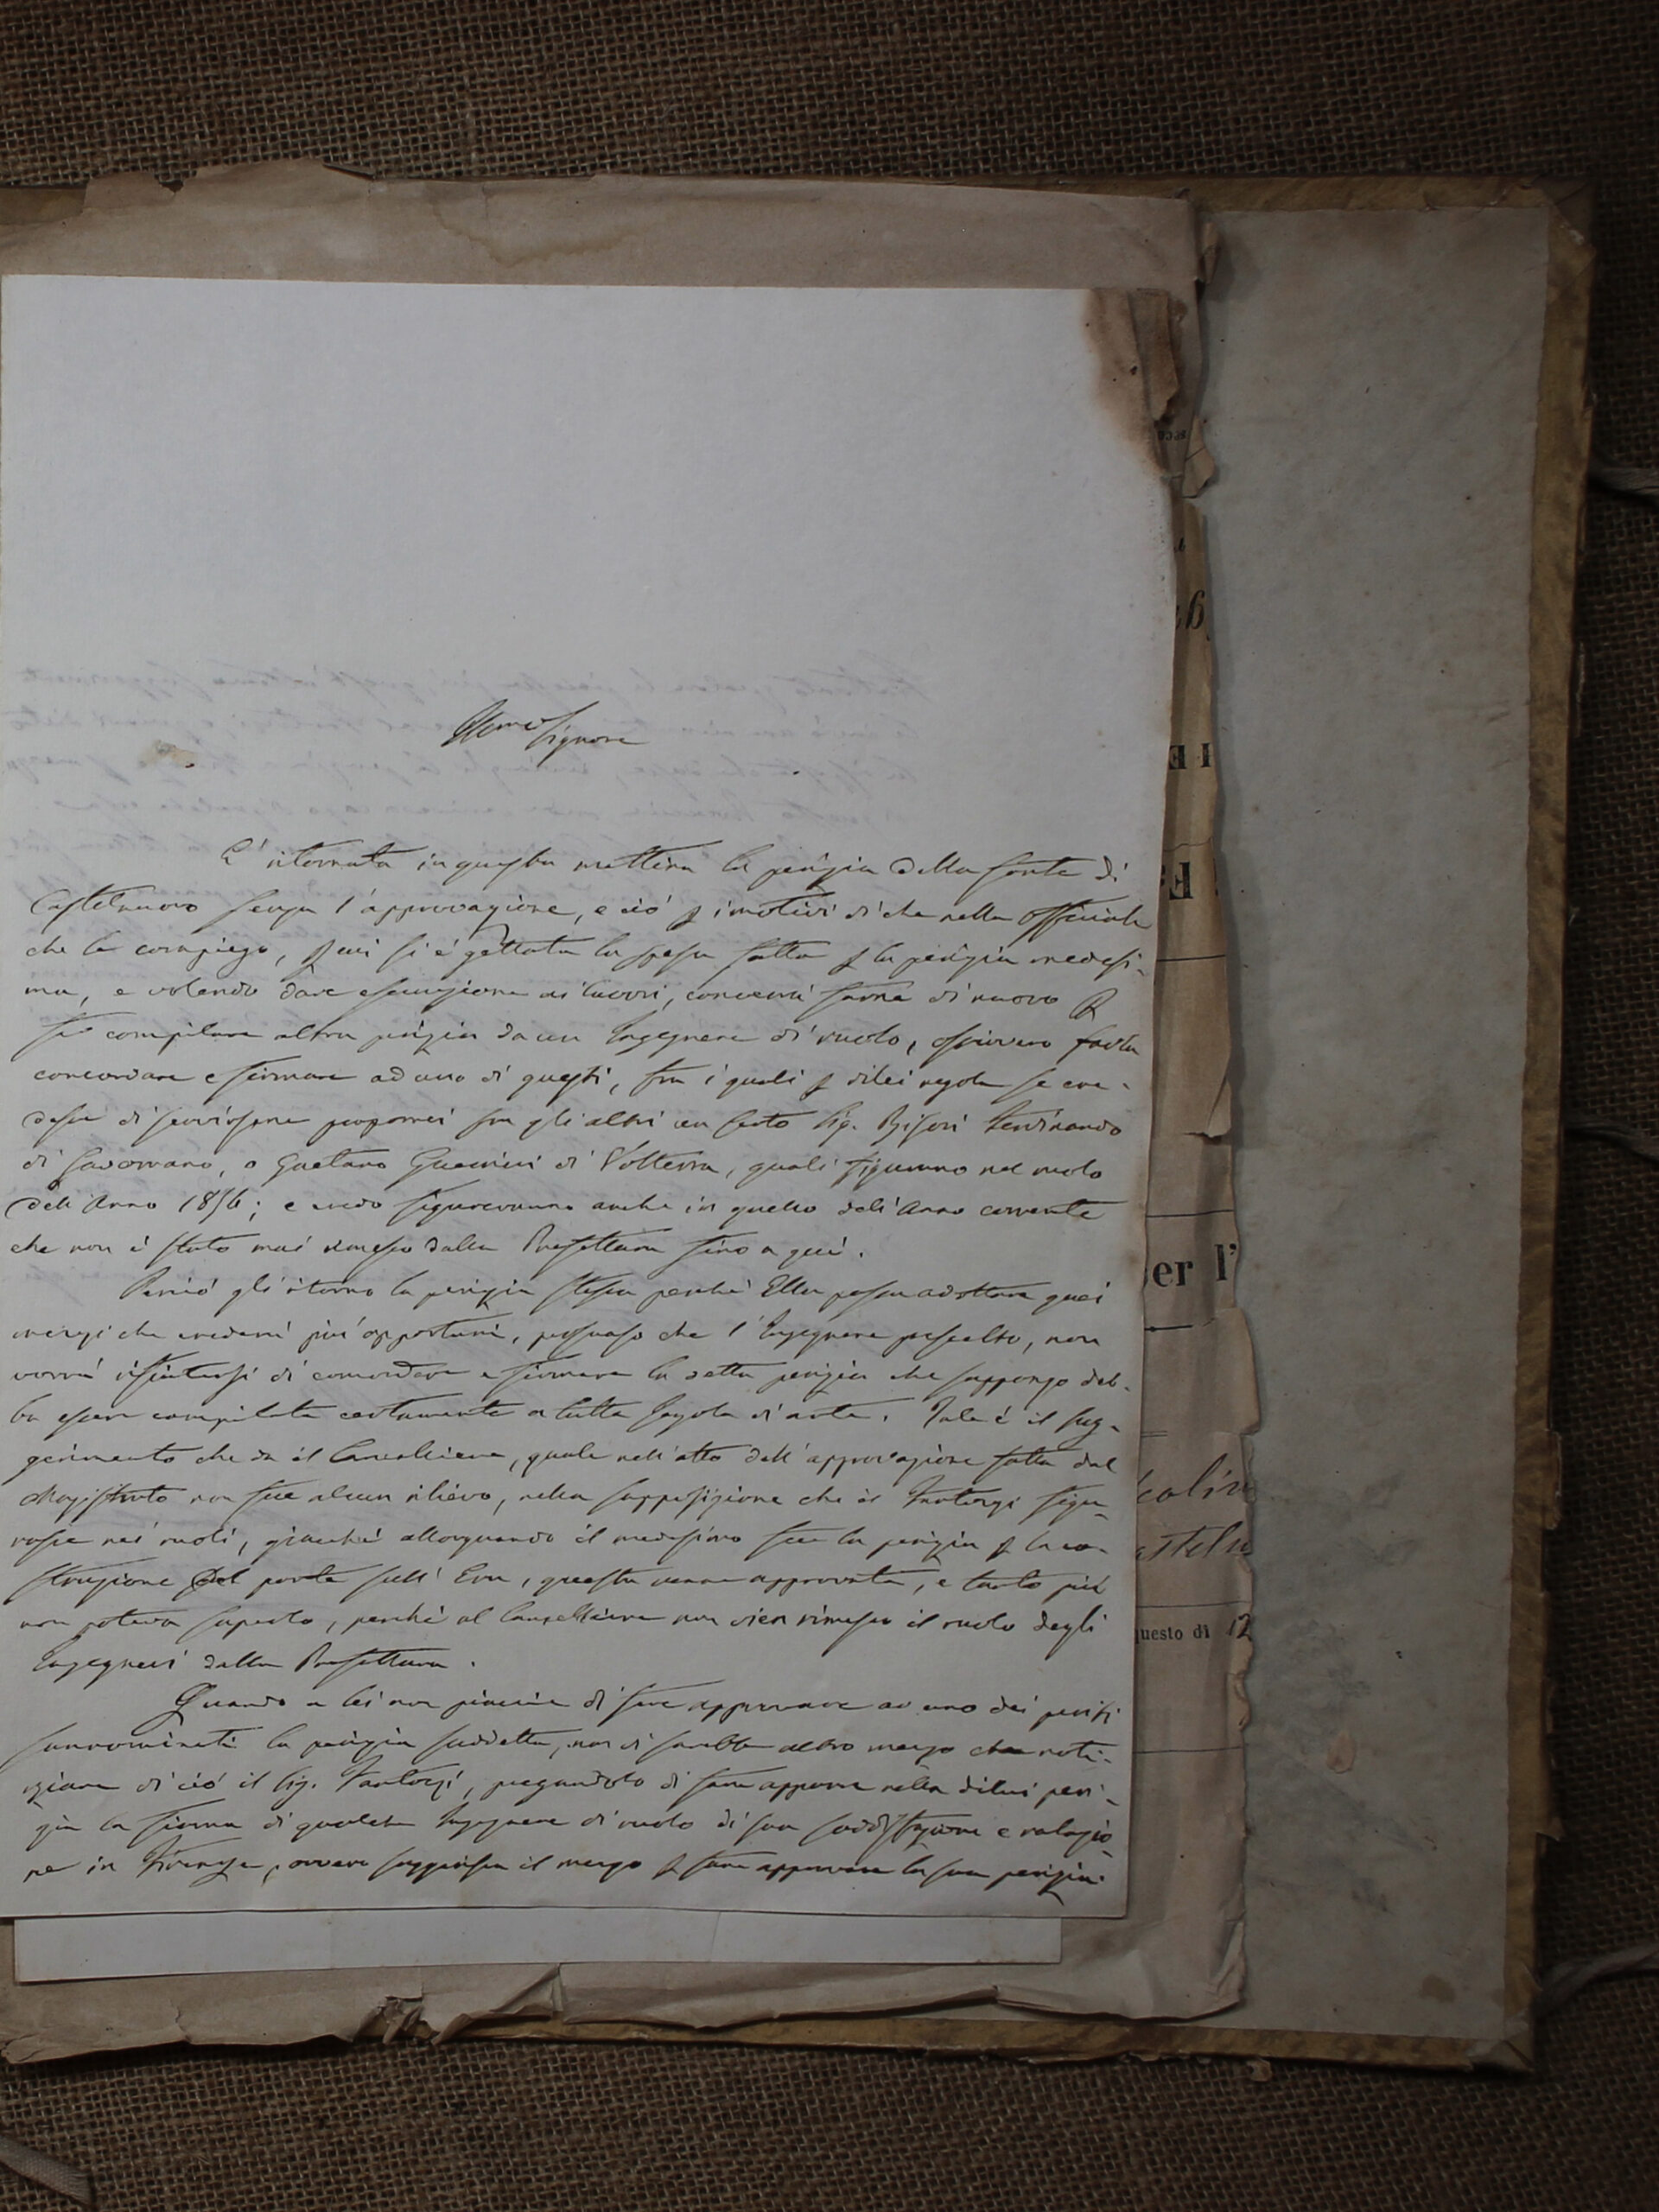 Illmo Signore
E' ritornata in questa mattina la perizia della fonte di
Castelnuovo senza l'approvazione, e ciò p i motivi di che nella officiale
che le compiego, p cui si è gettata la spesa fatta p la perizia medesi-
ma, e volendo dare esecuzione ai lavori, converrà farne di nuovo
compilare altra perizia da un Ingegnere di ruolo, ossivvero farla
concordare e firmare ad uno di questi, fra i quali p di lei regola se cre-
desse di servirsene proporrei fra gli altri un certo Sig. Ferdinando
di Gavorrano, o Gaetano Guerrieri di Volterra, quali figurano nel ruolo
dell'Anno 1856; e credo figureranno anche in quello dell'Anno corrente
che non è stato mai rimesso dalla Prefettura fino a qui.
Perciò gli ritorno la perizia stessa perchè Ella possa adottare quei
mezzi che crederà più opportuni, persuaso che l'Ingegnere prescelto, non
vorrà rifiutarsi di concordare e firmare la detta perizia che suppongo deb-
ba essere compilata certamente a tutta regola d'arte. Tale è il sug-
gerimento che da il Cancelliere, quale nell'atto dell'approvazione fatta dal
Magistrato non fece alcun rilievo, nella supposizione che il figu-
rasse nei ruoli, giacchè allorquando il medesimo fece la perizia p la co-
struzione del ponte sull'Era, questa venne approvata, e tanto più
non poteva saperlo, perchè al Cancelliere non vien rimesso il ruolo degli
Ingegneri dalla Prefettura.
Quando a lei non piaccia di fare approvare ad uno dei periti
sunnominati la perizia suddetta, non vi sarebbe altro mezzo che noti-
ziare di ciò il Sig. pregandolo di fare apporre nella di lui peri-
zia la firma di qualche Ingegnere di ruolo di sua soddisfazione e
ne in Firenze, ovvero suggerisca il mezzo p fare approvare la sua perizia.
er l'
uesto di 12